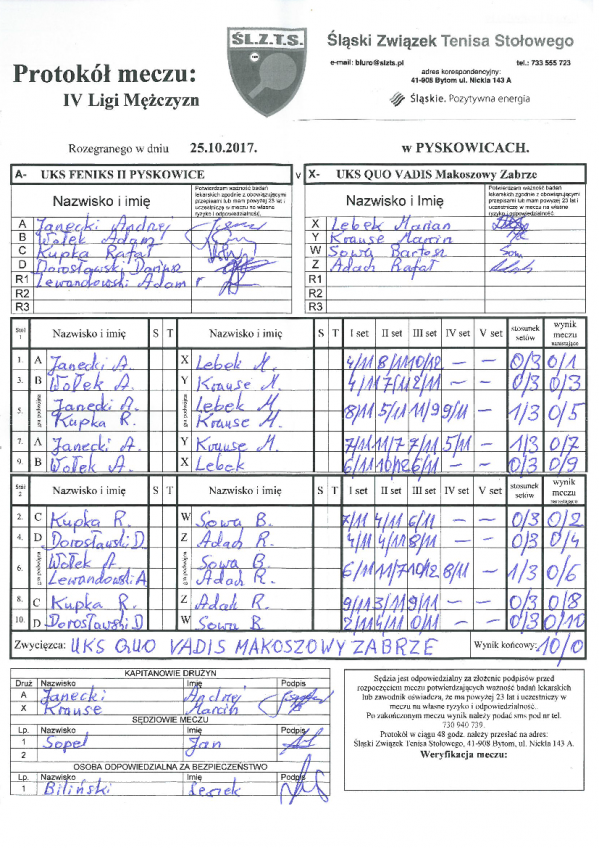 ŚL.Z.T.S.
Śląski Związek Tenisa Stołowego
e-mail: biuro@slzts.pl tel.: 733 555 723
adres korespondencyjny:
41-908 Bytom ul. Nickla 143 A
Śląskie. Pozytywna energia
Protokół meczu:
IV Ligi Mężczyzn
Rozegranego w dniu 25.10.2017. w PYSKOWICACH.
A- UKS FENIKS II PYSKOWICE v X- UKS QUO VADIS Makoszowy Zabrze
Nazwisko i imię Potwierdzam ważność badań lekarskich zgodnie z obowiązującymi przepisami lub mam powyżej 23 lat i uczestniczę w meczu na własne ryzyko i odpowiedzialność. Nazwisko i Imię Potwierdzam ważność badań lekarskich zgodnie z obowiązującymi przepisami lub mam powyżej 23 lat i uczestniczę w meczu na własne ryzyko i odpowiedzialność.
A Janecki Andrzej X Lebek Marian
B Wołek Adam Y Krause Marcin
C Kupka Rafał W Sowa Bartosz
D Dorosławski Dariusz Z Adach Rafał
R1 Lewandowski Adam R1
R2 R2
R3 R3
Stół 1 Nazwisko i imię S T Nazwisko i imię S T I set II set III set IV set V set stosunek setów wynik meczu narastająco
1. A Janecki A. X Lebek M. 4/11 8/11 10/12 – – 0/3 0/1
3. B Wołek A. Y Krause M. 4/11 7/11 2/11 – – 0/3 0/3
5. gra podwójna Janecki A. Lebek M. 8/11 5/11 11/9 9/11 – 1/3 0/5
Kupka R. Krause M.
7. A Janecki A. Y Krause M. 7/11 11/7 7/11 5/11 – 1/3 0/7
9. B Wołek A. X Lebek 6/11 10/12 6/11 – – 0/3 0/9
Stół 2 Nazwisko i imię S T Nazwisko i imię S T I set II set III set IV set V set stosunek setów wynik meczu narastająco
2. C Kupka R. W Sowa B. 7/11 4/11 6/11 – – 0/3 0/2
4. D Dorosławski D. Z Adach R. 4/11 4/11 8/11 – – 0/3 0/4
6. gra podwójna Wołek A. Sowa B. 6/11 11/7 10/12 8/11 – 1/3 0/6
Lewandowski A Adach R.
8. C Kupka R. Z Adach R. 9/11 3/11 9/11 – – 0/3 0/8
10. D Dorosławski D W Sowa B 2/11 4/11 0/11 – – 0/3 0/10
Zwycięzca: UKS QUO VADIS MAKOSZOWY ZABRZE Wynik końcowy: 10/0
KAPITANOWIE DRUŻYN
Druż Nazwisko Imię Podpis
A Janecki Andrzej
X Krause Marcin
SĘDZIOWIE MECZU
Lp. Nazwisko Imię Podpis
1 Sopel Jan
2
OSOBA ODPOWIEDZIALNA ZA BEZPIECZEŃSTWO
Lp. Nazwisko Imię Podpis
1 Biliński Leszek
Sędzia jest odpowiedzialny za złożenie podpisów przed
rozpoczęciem meczu potwierdzających ważność badań lekarskich
lub zawodnik oświadcza, że ma powyżej 23 lat i uczestniczy w
meczu na własne ryzyko i odpowiedzialność.
Po zakończonym meczu wynik należy podać sms pod nr tel.
730 940 739.
Protokół w ciągu 48 godz. należy przesłać na adres:
Śląski Związek Tenisa Stołowego, 41-908 Bytom, ul. Nickla 143 A.
Weryfikacja meczu: